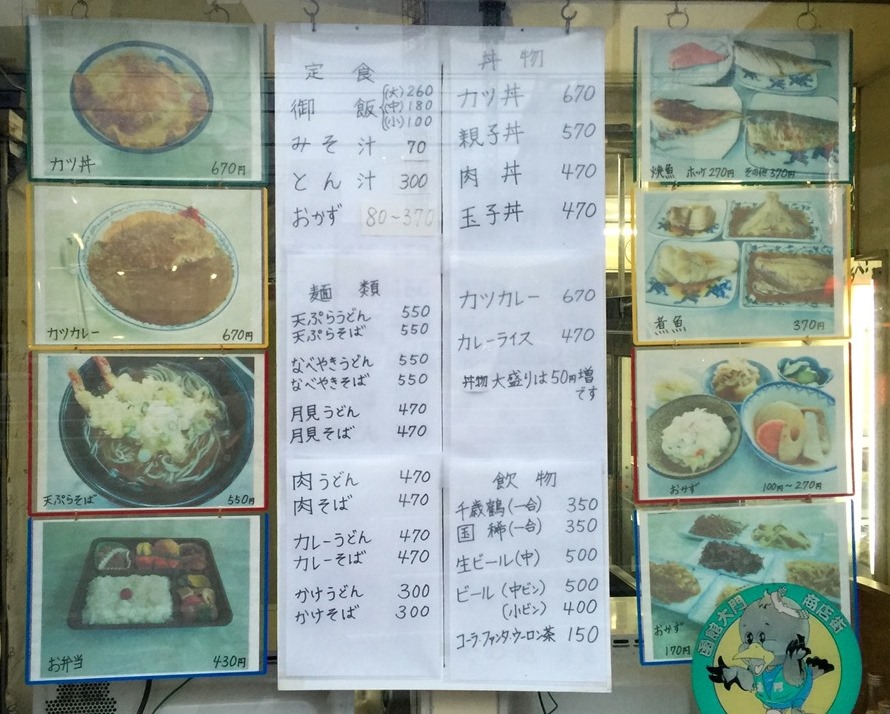 カツ丼 670円
カツカレー 670円
天ぷらそば 550円
お弁当 430円
定食
御飯 (大) 260
(中) 180
(小) 100
みそ汁 70
とん汁 300
おかず 80～370
麺類
天ぷらうどん 550
天ぷらそば 550
なべやきうどん 550
なべやきそば 550
月見うどん 470
月見そば 470
肉うどん 470
肉そば 470
カレーうどん 470
カレーそば 470
かけうどん 300
かけそば 300
丼物
カツ丼 670
親子丼 570
肉丼 470
玉子丼 470
カツカレー 670
カレーライス 470
丼物大盛りは50円増
です
飲物
千歳鶴(一合) 350
国稀(一合) 350
生ビール(中) 500
ビール(中ビン) 500
(小ビン) 400
コーラ・ファンタ・ウーロン茶 150
焼魚 ホッケ270円 その他370円
煮魚 370円
おかず 100円～270円
おかず
170円
函館大門 商店街
門